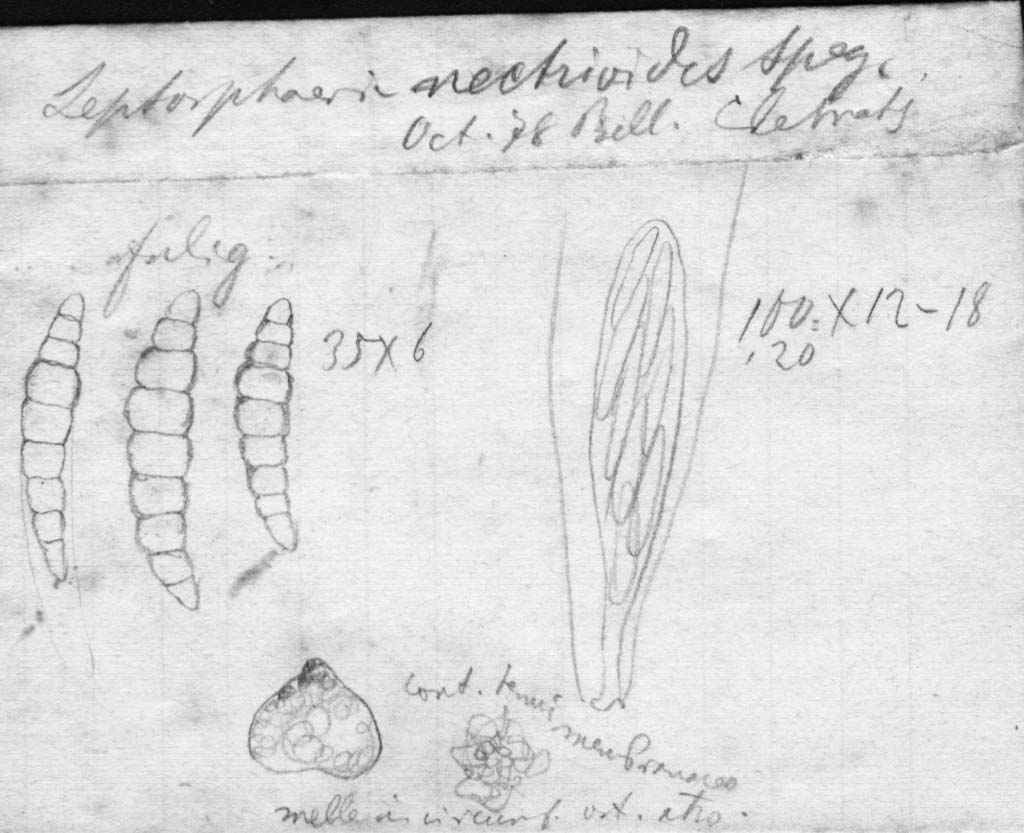 Leptosphaeria nectrioides Speg.
Oct. 78 Bell. Clematis
fulig.
35 X 6
100 = X 12 - 18
120
cont. tenui
membranaceo
melleis circum ost. atro.